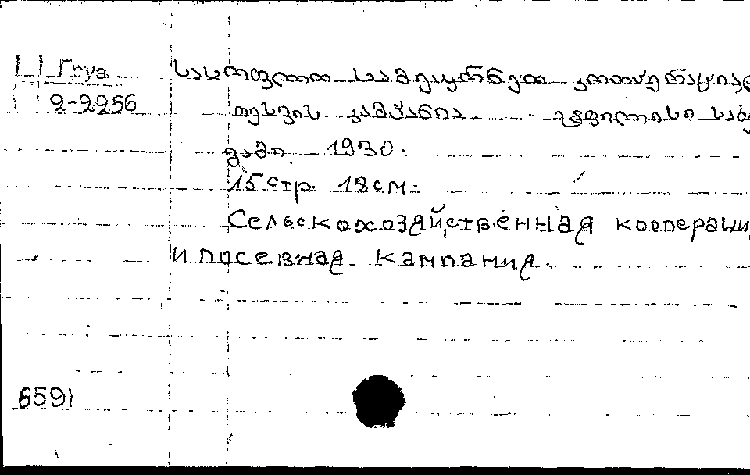 Груз
2-2256
სასოფლო სამეურნეო კოოპერაცია
თესვის კამპანია ტფილისი
1930.
15 стр. 18 см.
Сельскохозяйственная кооперации
и посевная кампания.
6591